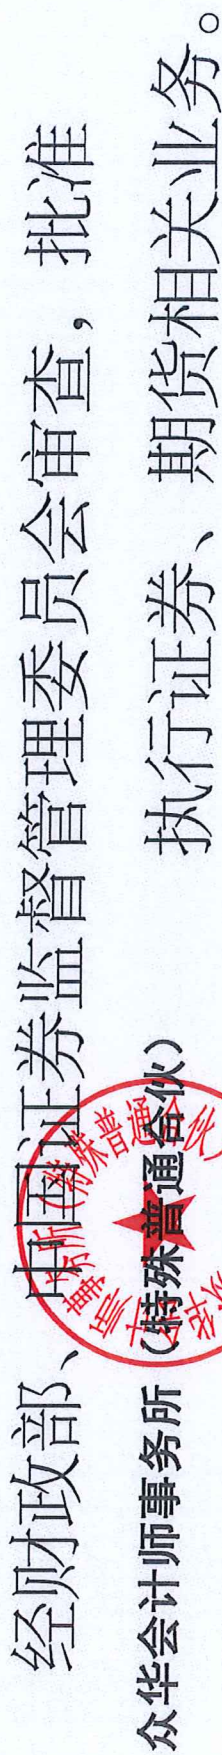 经财政部、中国证券监督管理委员会审查，批准
众华会计师事务所（特殊普通合伙） 执行证券、期货相关业务。
众华会计师事务所（特殊普通合伙）